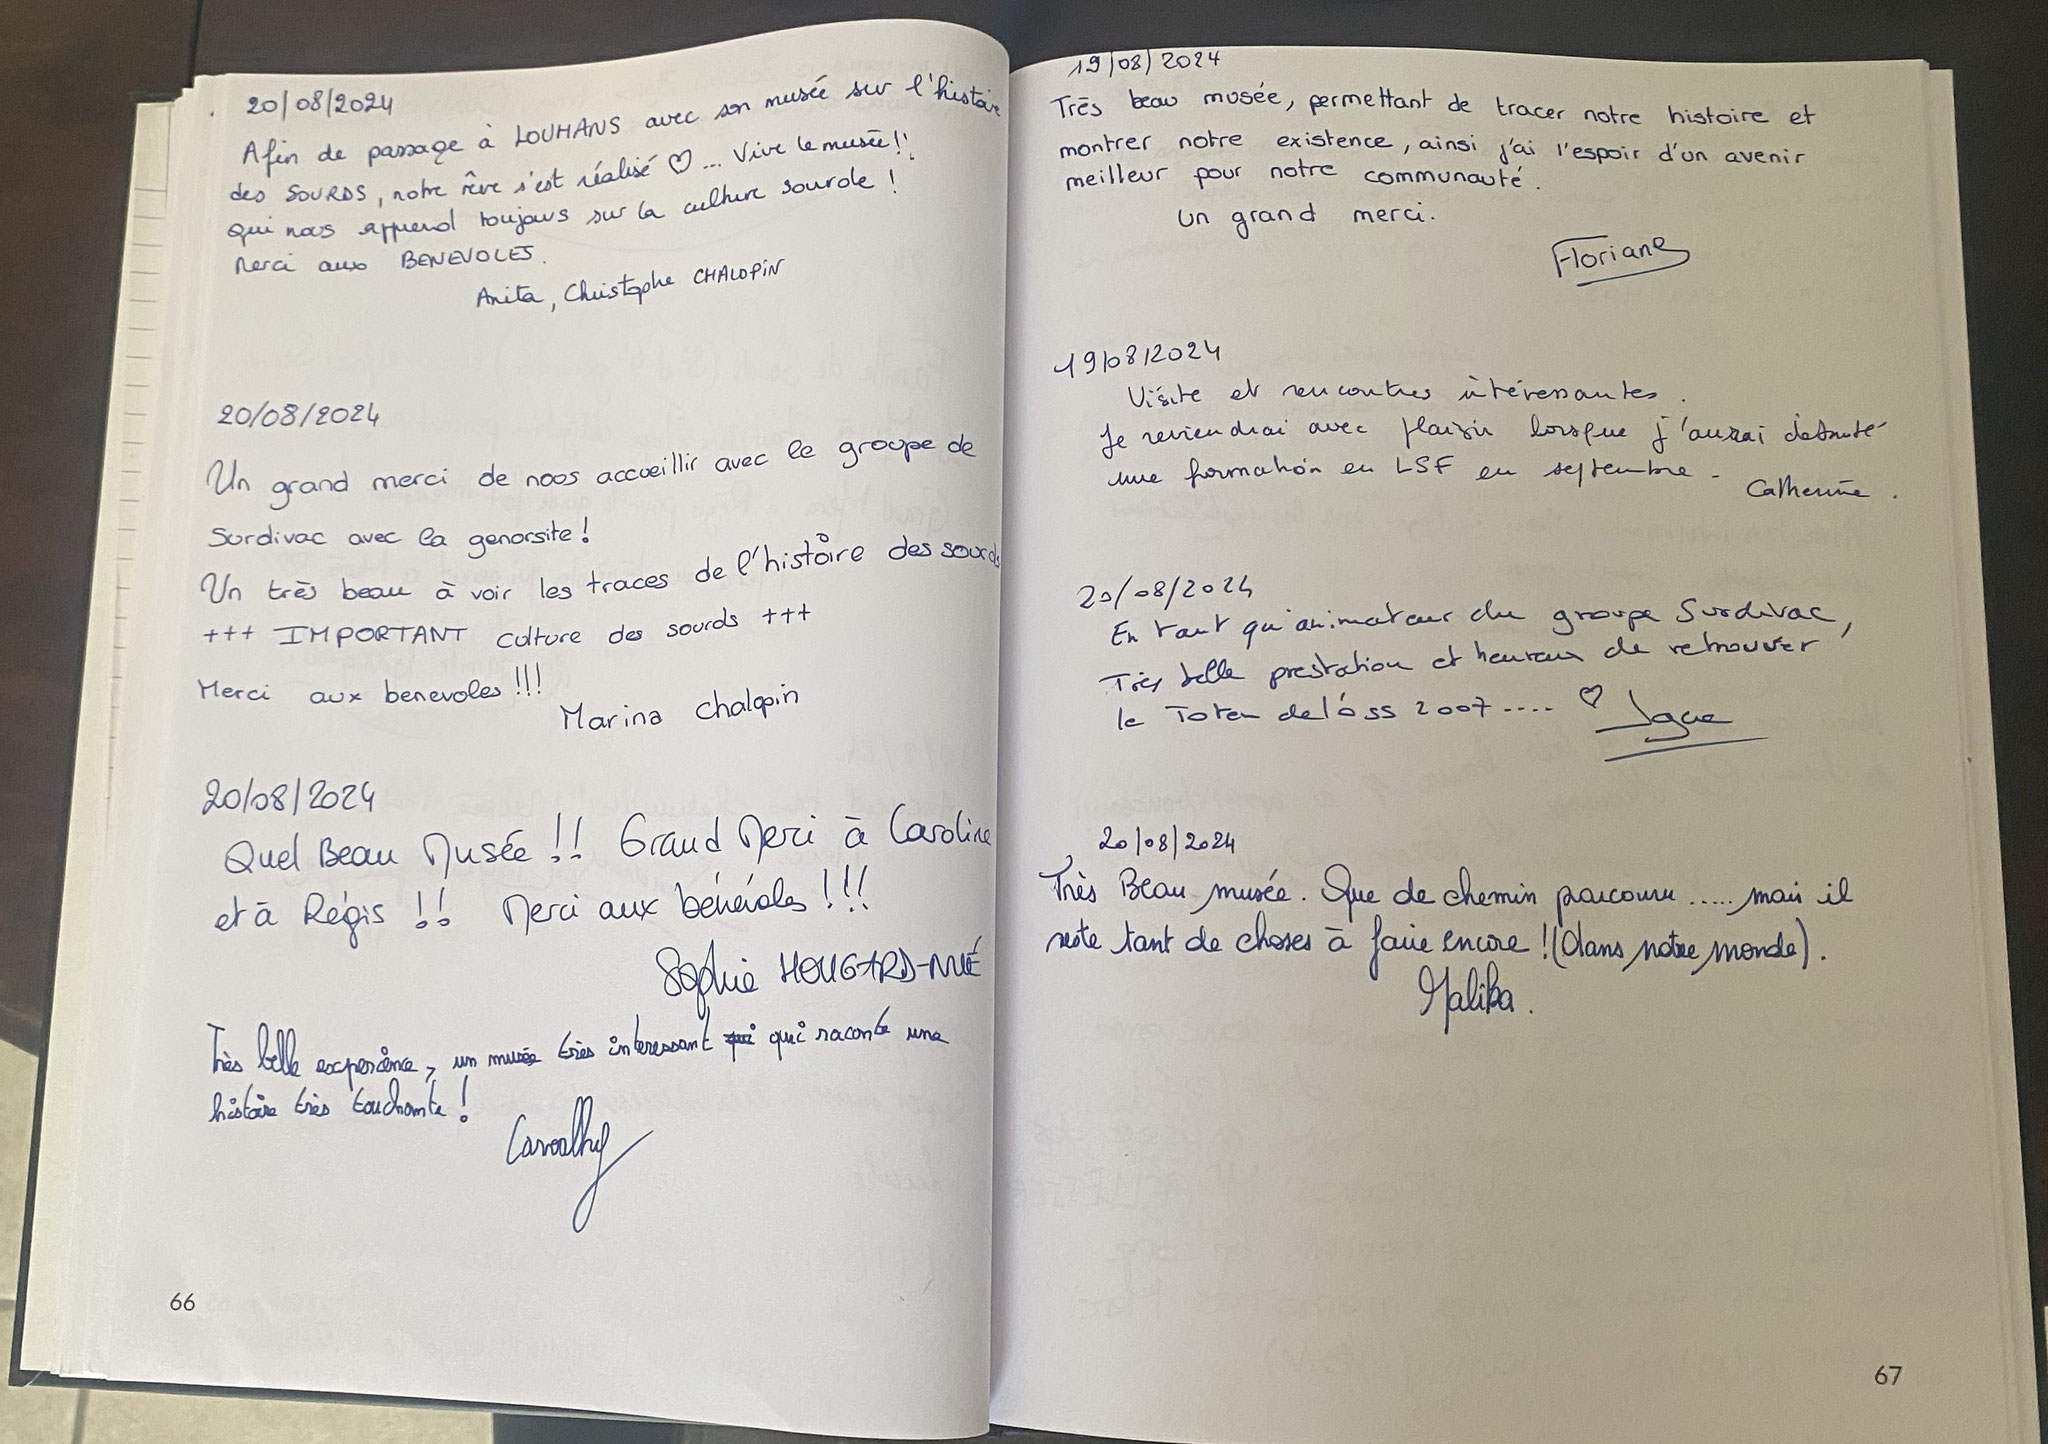 20/08/2024
Afin de passage à LOUHANS avec son musée sur l'histoire
des SOURDS, notre rêve s'est réalisé ♡... Vive le musée!!
qui nous apprend toujours sur la culture sourde !
Merci aux BENEVOLES.
Anita, Christophe CHALOPIN
20/08/2024
Un grand merci de noos accueillir avec le groupe de
Surdivac avec la genorsite!
Un très beau à voir les traces de l'histoire des sourds
+++ IMPORTANT culture des sourds +++
Merci aux benevoles !!!
Marina Chalopin
20/08/2024
Quel Beau Musée !! Grand Merci à Caroline
et à Régis !! Merci aux bénévoles !!!
Sophie HOUGARD-NUÉ
Très belle experience, un musée très interessant qui qui raconte une
histoire très touchante !
66
19/08/2024
Très beau musée, permettant de tracer notre histoire et
montrer notre existence, ainsi j'ai l'espoir d'un avenir
meilleur pour notre communauté.
Un grand merci.
Floriane
19/08/2024
Visite et rencontres intéressantes.
Je reviendrai avec plaisir lorsque j'aurai débuté
une formation en LSF en septembre.
Catherine.
20/08/2024
En tant qu'animateur du groupe Surdivac,
Très belle prestation et heureux de retrouver
le Totem de l'óss 2007.... ♡
20/08/2024
Très Beau musée. Que de chemin parcouru ..... mais il
reste tant de choses à faire encore ! (dans notre monde).
Malika.
67